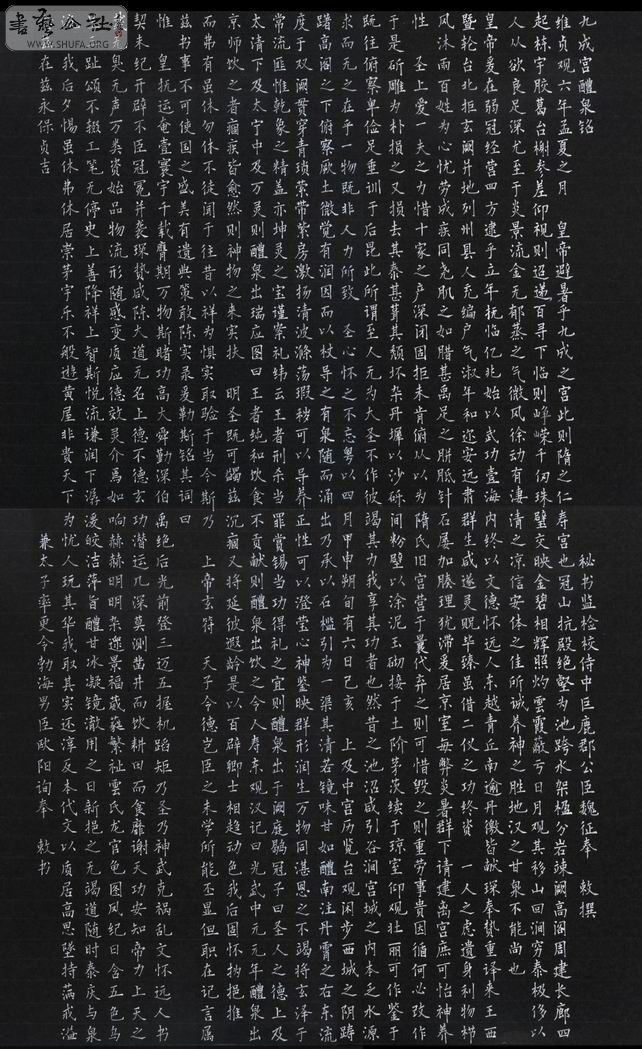 九成宫醴泉铭 秘书监检校侍中巨鹿郡公臣魏征奉 敕撰
维贞观六年孟夏之月 皇帝避暑乎九成之宫此则隋之仁寿宫也冠山抗殿绝壑为池跨水架楹分岩竦阙高阁周建长廊四
起栋宇胶葛台榭参差仰视则迢递百寻下临则峥嵘千仞珠璧交映金碧相辉照灼雲霞蔽亏日月观其移山回涧穷泰极侈以
人从欲良足深尤至于炎景流金无郁蒸之气微风徐动有凄清之凉信安体之佳所诚养神之胜地汉之甘泉不能尚也
皇帝爰在弱冠经营四方逮乎立年抚临亿兆始以武功壹海内终以文德怀远人东越青丘南逾丹徼皆献琛奉贽重译来王西
暨轮台北拒玄阙并地列州县人充编户气淑年和迩安远肃群生咸遂灵贶毕臻虽借二仪之功终资 一人之虑遗身利物栉
风沐雨百姓为心忧劳成疾同尧肌之如腊甚禹足之胼胝针石屡加腠理犹滞爰居京室每弊炎暑群下请建离宫庶可怡神养
性 圣上爱一夫之力惜十家之产深闭固拒未肯俯从以为隋氏旧宫营于曩代弃之则可惜毁之则重劳事贵因循何必改作
于是斫雕为朴损之又损去其泰甚葺其颓坏杂丹墀以沙砾间粉壁以涂泥玉砌接于土阶茅茨续于琼室仰观壮丽可作鉴于
既往俯察卑俭足垂训于后昆此所谓至人无为大圣不作彼竭其力我享其功者也然昔之池沼咸引谷涧宫城之内本乏水源
求而无之在乎一物既非人力所致 圣心怀之不忘粤以四月甲申朔旬有六日己亥 上及中宫历览台观闲步西城之阴踌
躇高阁之下俯察厥土微觉有润因而以杖导之有泉随而涌出乃承以石槛引为一渠其清若镜味甘如醴南注丹霄之右东流
度于双阙贯穿青琐萦带紫房激扬清波涤荡瑕秽可以导养正性可以澄莹心神鉴映群形润生万物同湛恩之不竭将玄泽于
常流匪惟乾象之精盖亦坤灵之宝谨案礼纬云王者刑杀当罪赏锡当功得礼之宜则醴泉出于阙庭鹖冠子曰圣人之德上及
太清下及太宁中及万灵则醴泉出瑞应图曰王者纯和饮食不贡献则醴泉出饮之令人寿东观汉记曰光武中元元年醴泉出
京师饮之者痼疾皆愈然则神物之来实扶 明圣既可蠲兹沉痼又将延彼遐龄是以百辟卿士相趋动色我后固怀㧑挹推
而弗有虽休勿休不徒闻于往昔以祥为惧实取验于当今斯乃 上帝玄符 天子令德岂臣之末学所能丕显但职在记言属
兹书事不可使国之盛美有遗典策敢陈实录爰勒斯铭其词曰
惟 皇抚运奄壹寰宇千载膺期万物斯睹功高大舜勤深伯禹绝后光前登三迈五握机蹈矩乃圣乃神武克祸乱文怀远人书
契未纪开辟不臣冠冕并袭琛贽咸陈大道无名上德不德玄功潜运几深莫测凿井而饮耕田而食靡谢天功安知帝力上天之
无臭无声万类资始品物流形随感变质应德效灵介焉如响赫赫明明杂遝景福葳蕤繁祉雲氏龙官龟图凤纪日含五色乌
趾颂不辍工笔无停史上善降祥上智斯悦流谦润下潺湲皎洁萍旨醴甘冰凝镜澈用之日新挹之无竭道随时泰庆与泉
我后夕惕虽休弗休居崇茅宇乐不般游黄屋非贵天下为忧人玩其华我取其实还淳反本代文以质居高思坠持满戒溢
在兹永保贞吉 兼太子率更令勃海男臣欧阳询奉 敕书
書藝公社
WWW.SHUFA.ORG